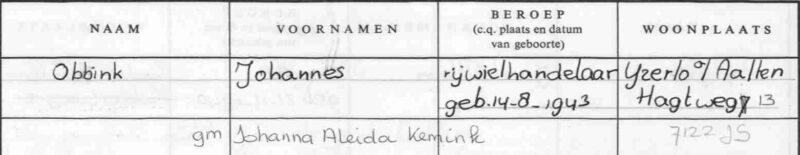 NAAM VOORNAMEN BEROEP (c.q. plaats en datum van geboorte) WOONPLAATS
Obbink Johannes rijwielhandelaar Yzerlo o/ Aalten
geb. 14-8-1943 Hagtweg 13
gm Johanna Aleida Kemink 7122 JS